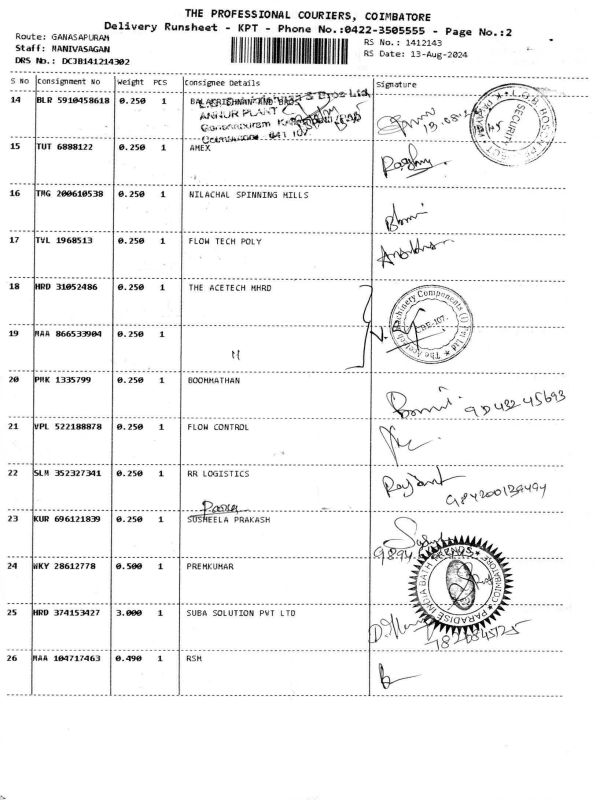 THE PROFESSIONAL COURIERS, COIMBATORE
Delivery Runsheet - KPT - Phone No.:0422-3505555 - Page No.:2
Route: GANASAPURAM
RS No.: 1412143
Staff: MANIVASAGAN
RS Date: 13-Aug-2024
DRS No.: DCJB141214302
S No Consignment No Weight PCS Consignee Details Signature
14 BLR 5910458618 0.250 1 BALAKRISHNAN AND
Bros Ltd,
ANNUR PLANT
SECURITY
15 TUT 6888122 0.250 1 AMEX
16 TMG 200610538 0.250 1 NILACHAL SPINNING MILLS
17 TVL 1968513 0.250 1 FLOW TECH POLY
18 HRD 31052486 0.250 1 THE ACETECH MHRD
The Acetech Machinery Components (I) Pvt Ltd
CBE-107.
19 MAA 866533904 0.250 1 "
20 PMK 1335799 0.250 1 BOOMMATHAN
21 VPL 522188878 0.250 1 FLOW CONTROL
22 SLM 352327341 0.250 1 RR LOGISTICS
23 KUR 696121839 0.250 1 SUSHEELA PRAKASH
24 WKY 28612778 0.500 1 PREMKUMAR
PARADISE INDIA BATH COIMBATORE
25 HRD 374153427 3.000 1 SUBA SOLUTION PVT LTD
26 MAA 104717463 0.490 1 RSM